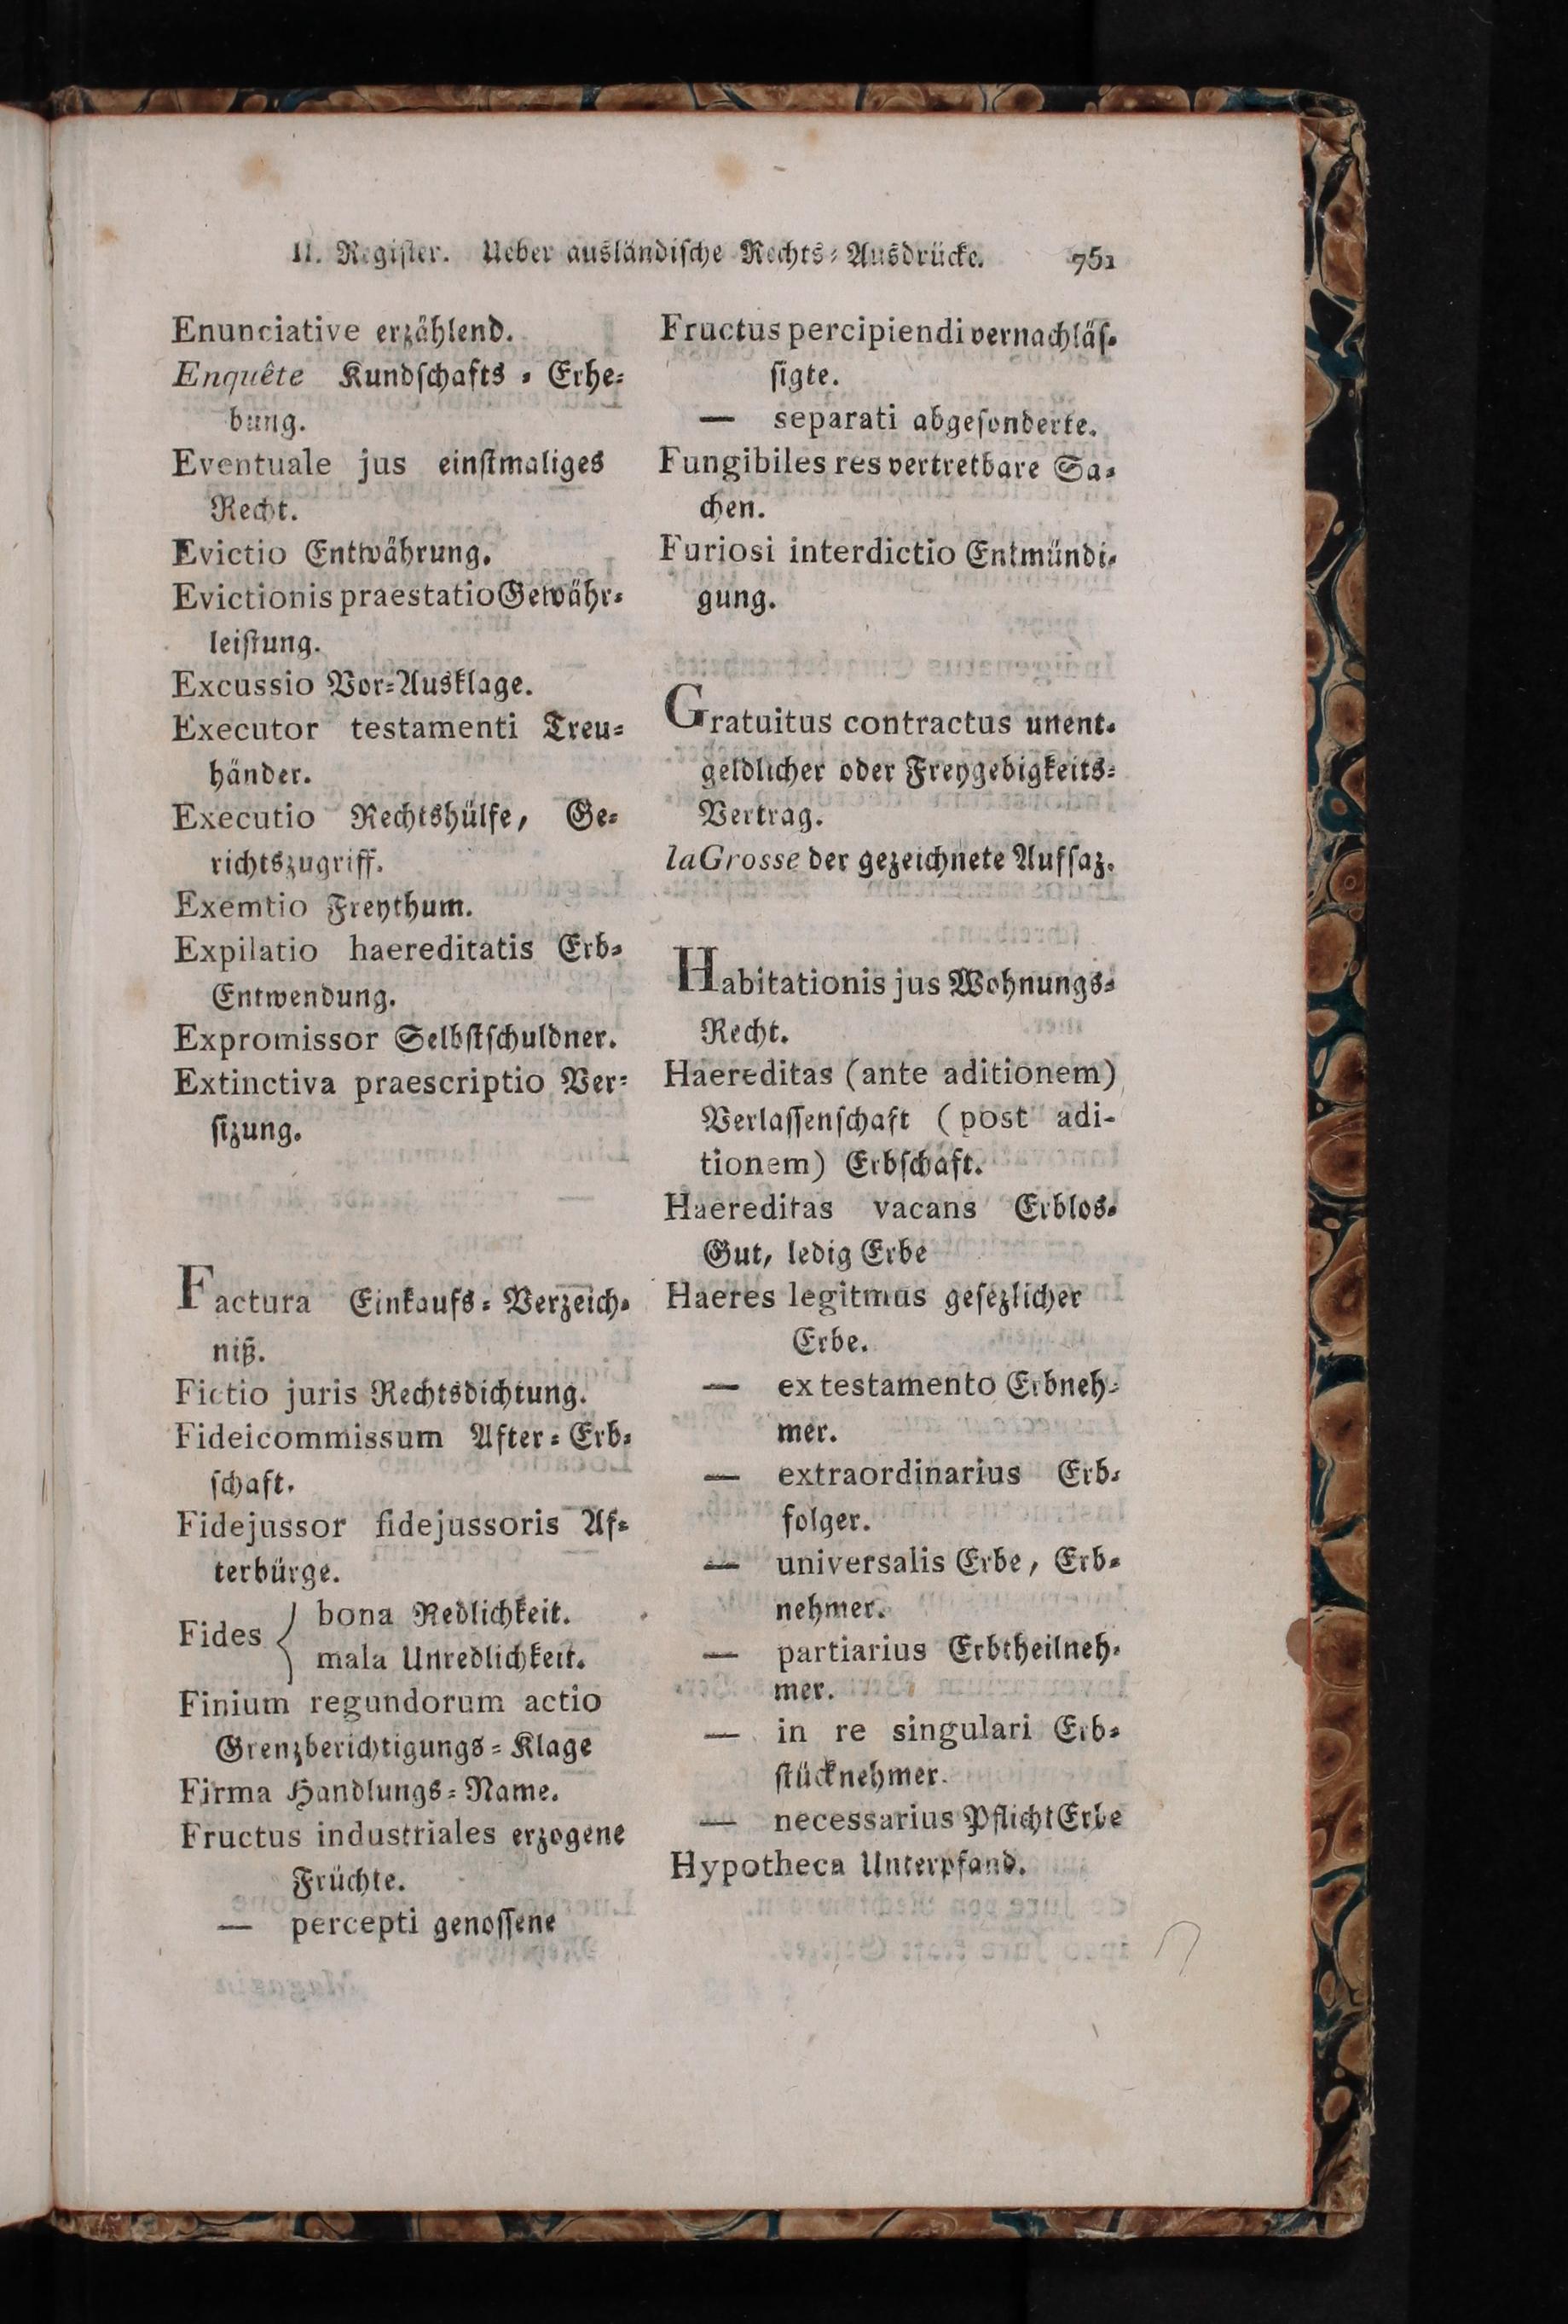 II. Register. Ueber ausländische Rechts-Ausdrücke. 751
Enunciative erzählend.
Enquête Kundschafts-Erhe-
bung.
Eventuale jus einstmaliges
Recht.
Evictio Entwährung.
Evictionis praestatio Gewähr-
leistung.
Excussio Vor-Ausklage.
Executor testamenti Treu-
händer.
Executio Rechtshülfe, Ge-
richtszugriff.
Exemtio Freythum.
Expilatio haereditatis Erb-
Entwendung.
Expromissor Selbstschuldner.
Extinctiva praescriptio Ver-
sizung.
Factura Einkaufs-Verzeich-
niß.
Fictio juris Rechtsdichtung.
Fideicommissum After-Erb-
schaft.
Fidejussor fidejussoris Af-
terbürge.
Fides { bona Redlichkeit.
mala Unredlichkeit.
Finium regundorum actio
Grenzberichtigungs-Klage
Firma Handlungs-Name.
Fructus industriales erzogene
Früchte.
— percepti genossene
Fructus percipiendi vernachläs-
sigte.
— separati abgesonderte.
Fungibiles res vertretbare Sa-
chen.
Furiosi interdictio Entmündi-
gung.
Gratuitus contractus unent-
geldlicher oder Freygebigkeits-
Vertrag.
la Grosse der gezeichnete Aufsaz.
Habitationis jus Wohnungs-
Recht.
Haereditas (ante aditionem)
Verlassenschaft (post adi-
tionem) Erbschaft.
Haereditas vacans Erblos-
Gut, ledig Erbe
Haeres legitmus gesezlicher
Erbe.
— ex testamento Erbneh-
mer.
— extraordinarius Erb-
folger.
— universalis Erbe, Erb-
nehmer.
— partiarius Erbtheilneh-
mer.
— in re singulari Erb-
stücknehmer.
— necessarius PflichtErbe
Hypotheca Unterpfand.